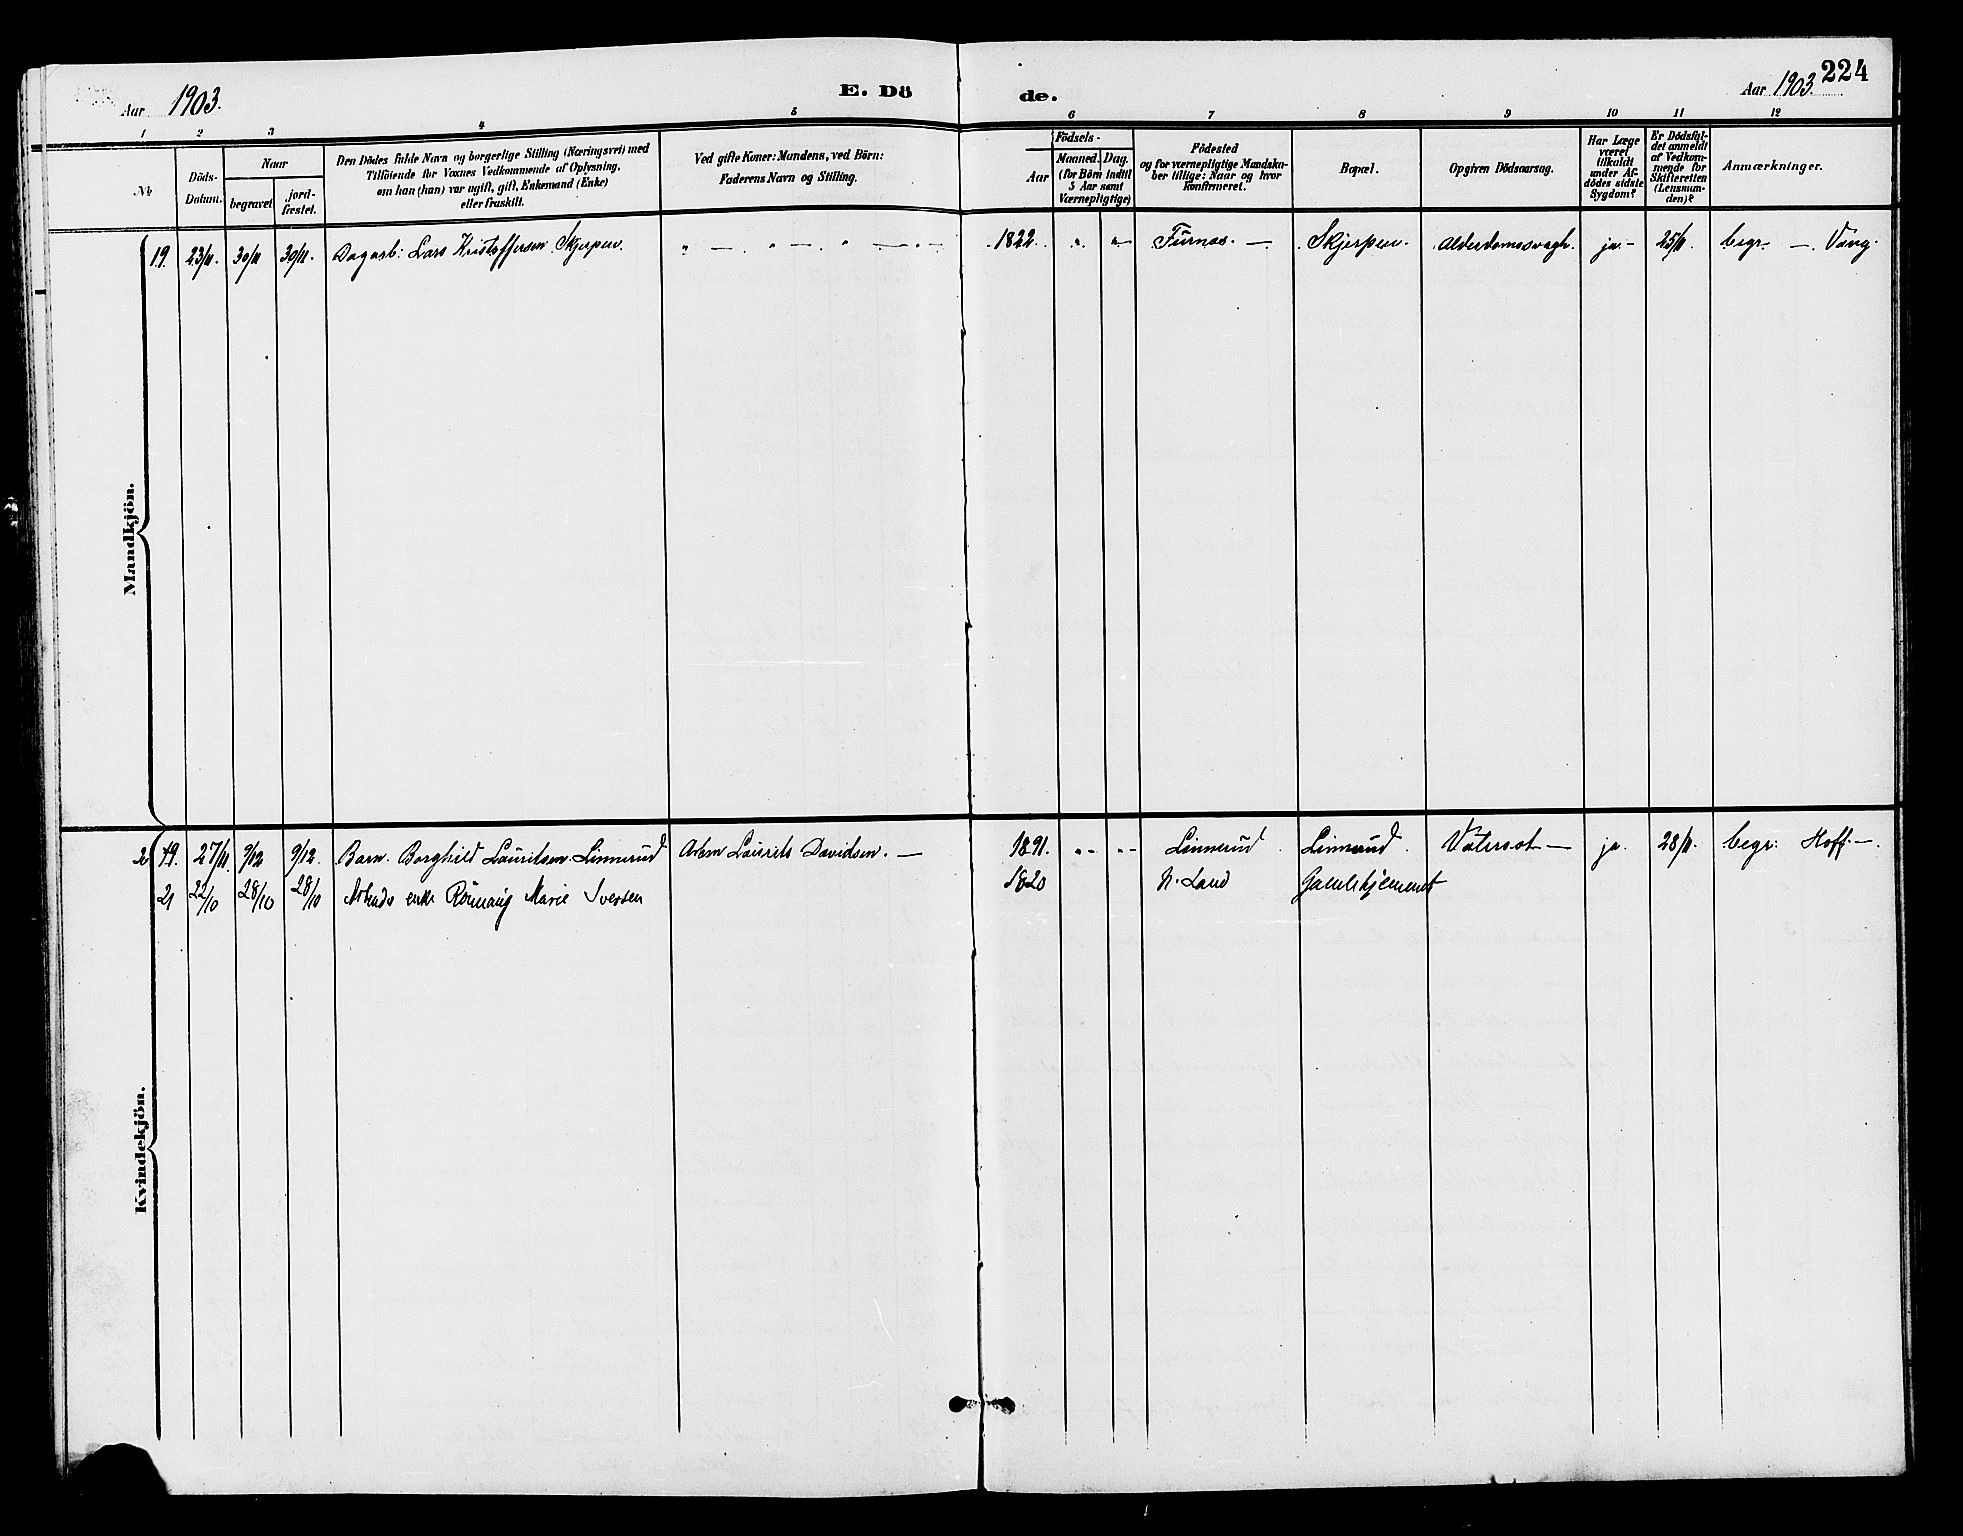 224
Aar 1903. E. Dö de. Aar 1903.
1 2 3 4 5 6 7 8 9 10 11 12
№
Döds-
Datum.
Naar
begravet
jord-
fæstet.
Den Dödes fulde Navn og borgerlige Stilling (Næringsvei) med
Tilföiende for Voxnes Vedkommende af Oplysning,
om han (hun) var ugift, gift, Enkemand (Enke)
eller fraskilt.
Ved gifte Koner: Mandens, ved Börn:
Faderens Navn og Stilling.
Födsels-
Aar
Maaned. Dag.
(for Börn indtil
5 Aar samt
Værnepligtige)
Födested
og for værnepligtige Mandska-
ber tillige: Naar og hvor
konfirmeret.
Bopæl.
Opgiven Dödsaarsag.
Har Læge
været
tilkaldt
under Af-
dödes sidste
Sygdom?
Er Dödsfal-
det anmeldt
af Vedkom-
mende for
Skifteretten
(Lensman-
den)?
Anmærkninger.
Mandkjön.
19. 23/11 30/11 30/11. Dagarb: Lars Kristoffersen Skjerpen. " — " — " — " — 1822. " " — Furnæs. — Skjerpen. Alderdomssvagh. ja. — 25/11. begr. — Vang.
Kvindekjön.
19. 27/11. 9/12 9/12. Barn. Borghild Lauritsen Linnerud Laurits Davidsen. — 1891. " - " - Linnerud. Linnerud. Vatersot — ja. 28/11. begr: Hoff. —
21 22/10 28/10 28/10 enke Rönnaug Marie Iversen 1820 N. Land